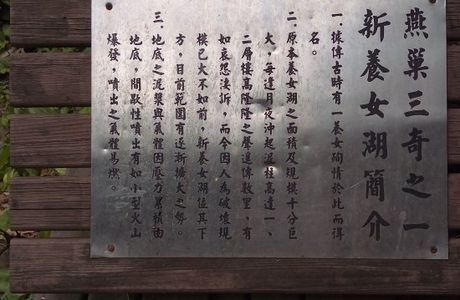 燕巢三奇之一
新養女湖簡介
一﹑據傳古時有一養女殉情於此而得
名。
二﹑原來養女湖之面積及規模十分巨
大，每逢月夜沖起泥柱高達一﹑
二層樓高隆隆之聲遠傳數里，有
如哀怨淒訴，而今因人為破壞規
模已大不如前，新養女湖位其下
方，目前範圍有逐漸擴大之勢。
三﹑地底之泥漿與氣體因壓力累積由
地底，間歇性噴出有如小型火山
爆發，噴出之氣體易燃。